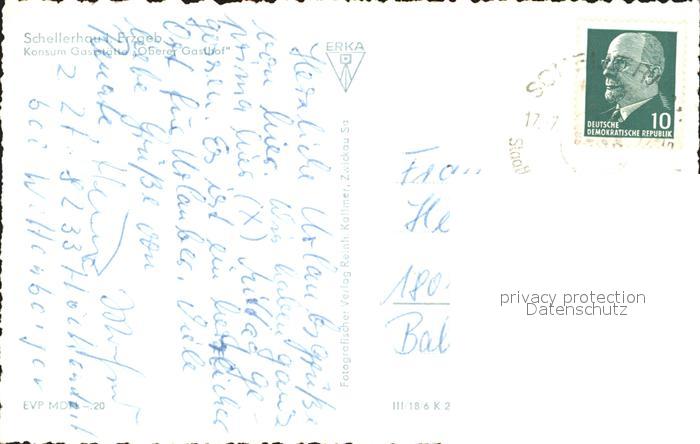 Schellerhau i. Erzgeb.
Konsum Gaststätte „Oberer Gasthof"
ERKA
Herzliche Urlaubsgrüße
von hier. Wir haben ganz
prima hier (X) Mittag ge-
gessen. Es ist ein herrlicher
Ort für Urlauber. Viele
liebe Grüße von
Renate
bei Wittenberge
Fotografischer Verlag Reinh. Kallmer, Zwickau Sa
EVP MDN -.20
III 18 6 K 2
17. 7
Stadt
10
DEUTSCHE
DEMOKRATISCHE REPUBLIK
Frau
He
180
Bal
privacy protection
Datenschutz